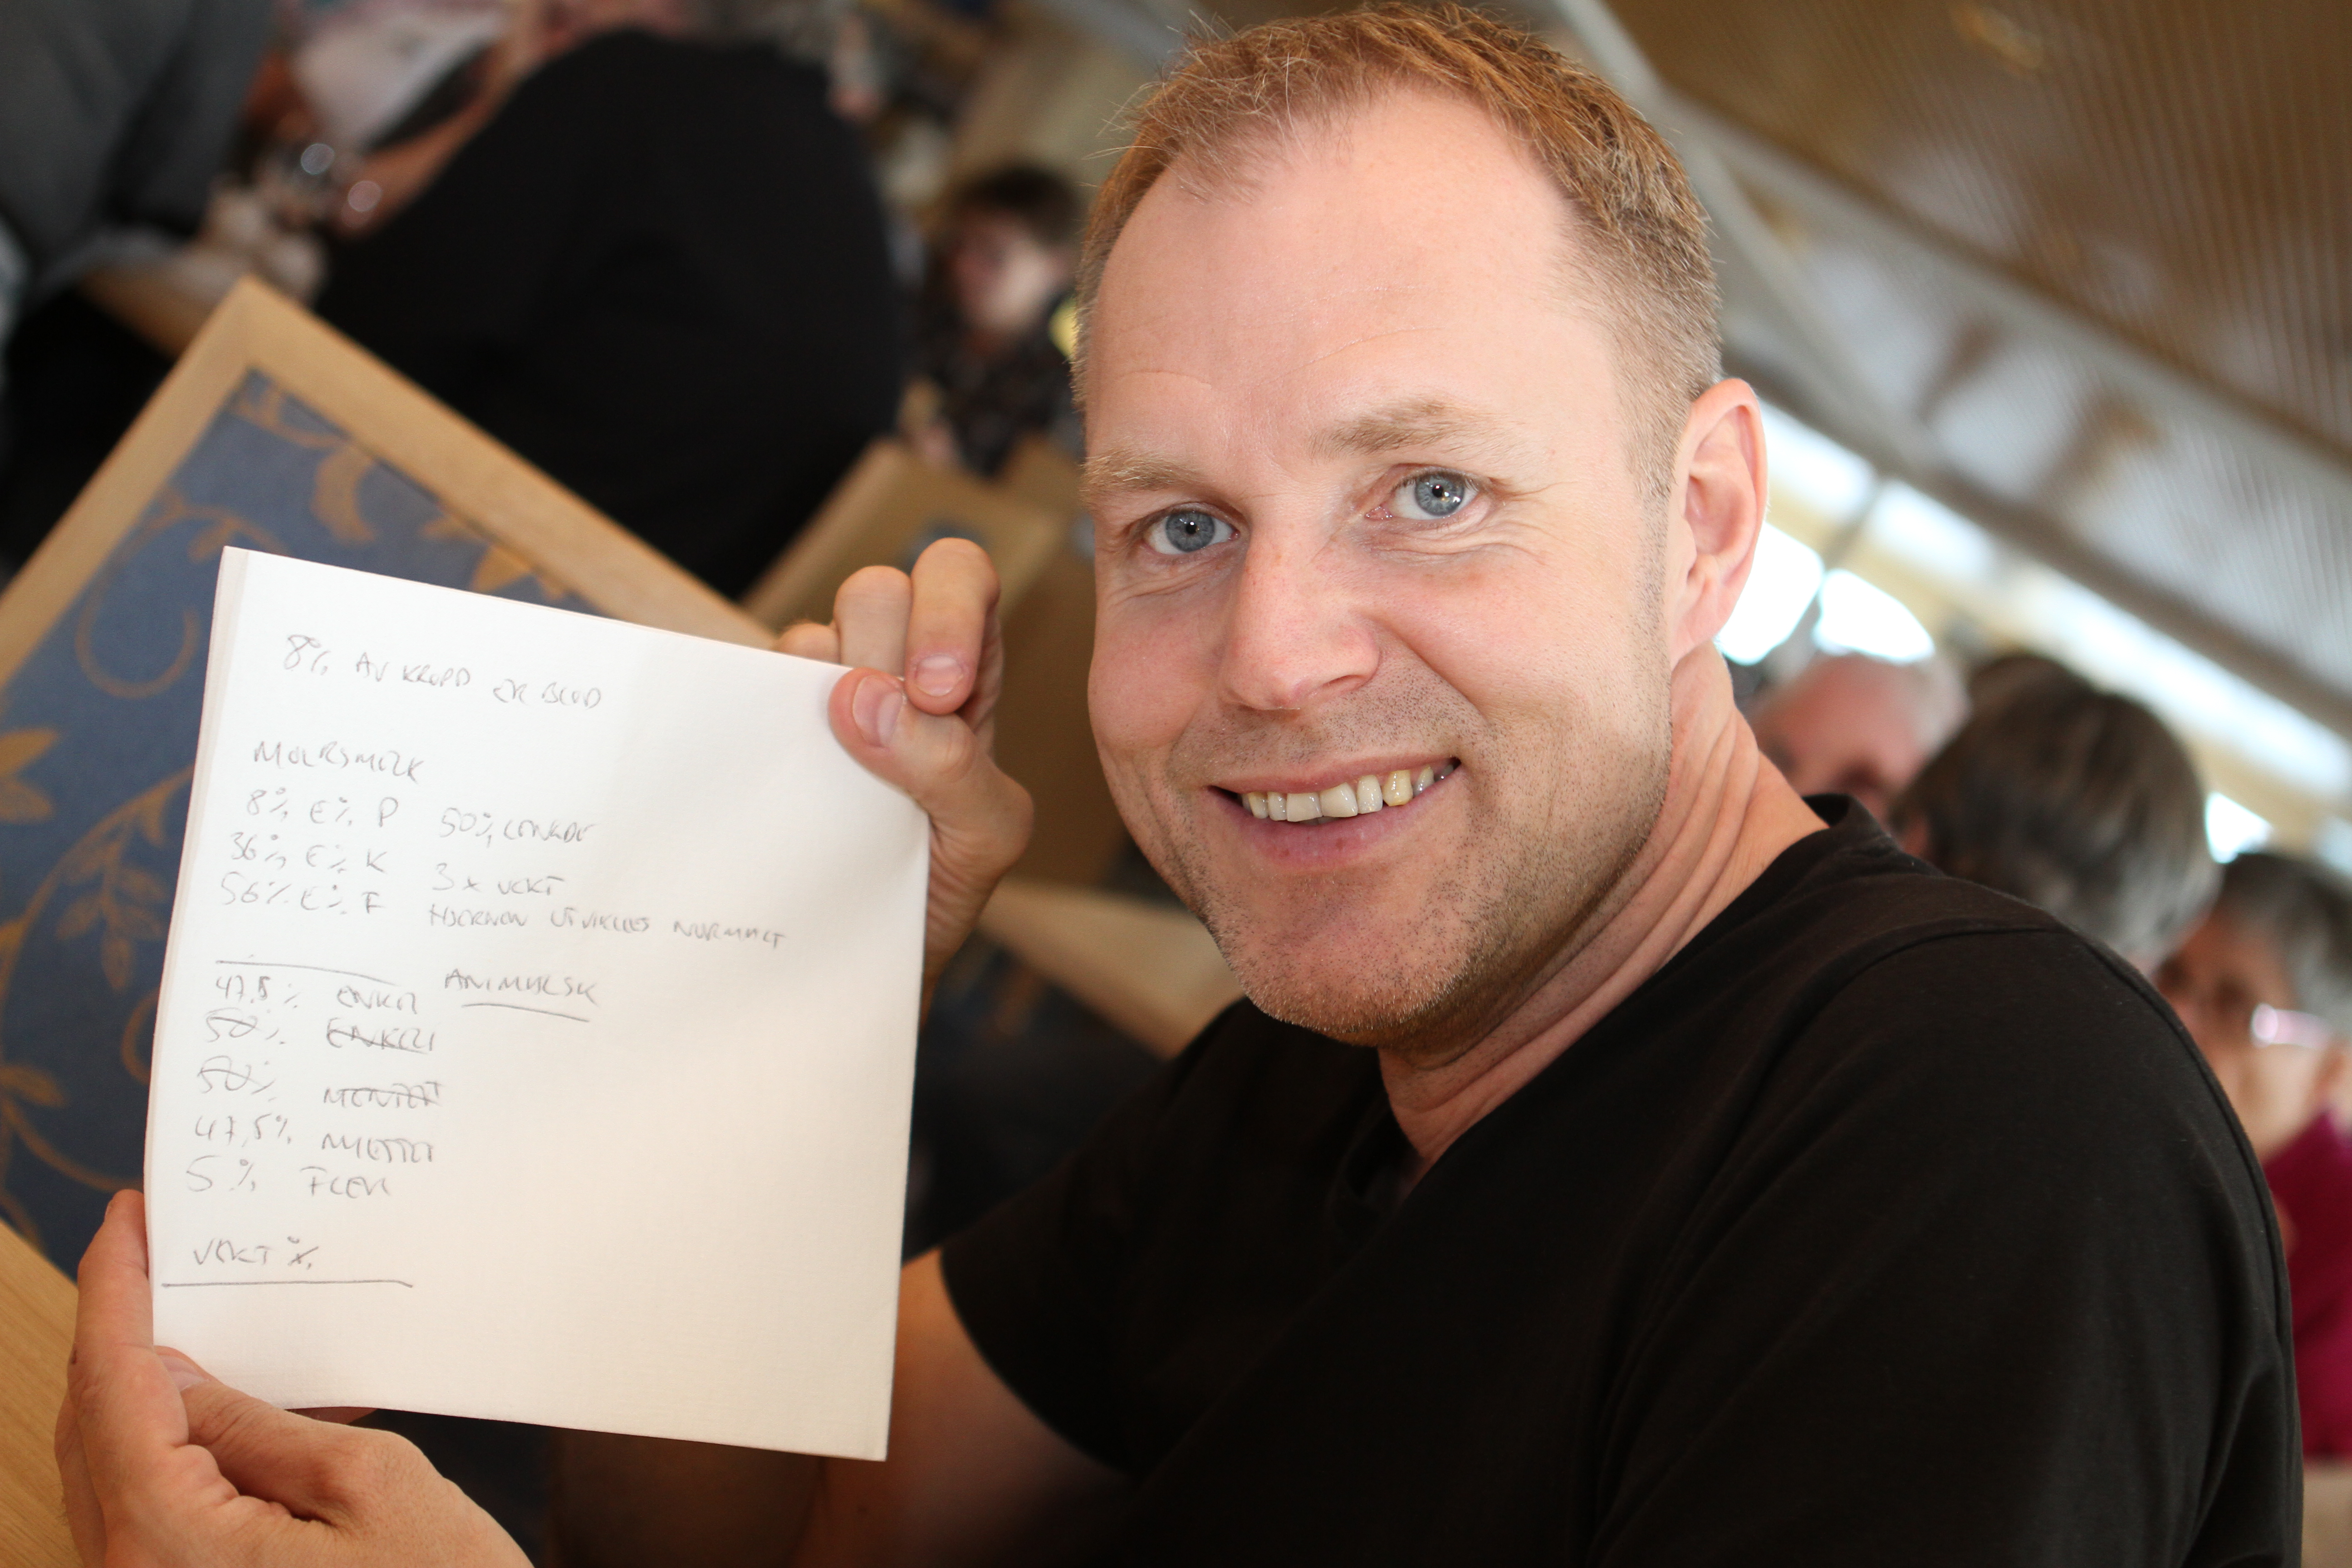 8% AV KROPP ER BLOD
MORSMELK
8% E% P 50% LENGDE
36% E% K 3 x VEKT
56% E% F HJERNEN UTVIKLES NORMALT
ANIMALSK
47.5% ENKEL
50% ENKELT
50% METTET
47,5% METTET
5% FLER
VEKT %